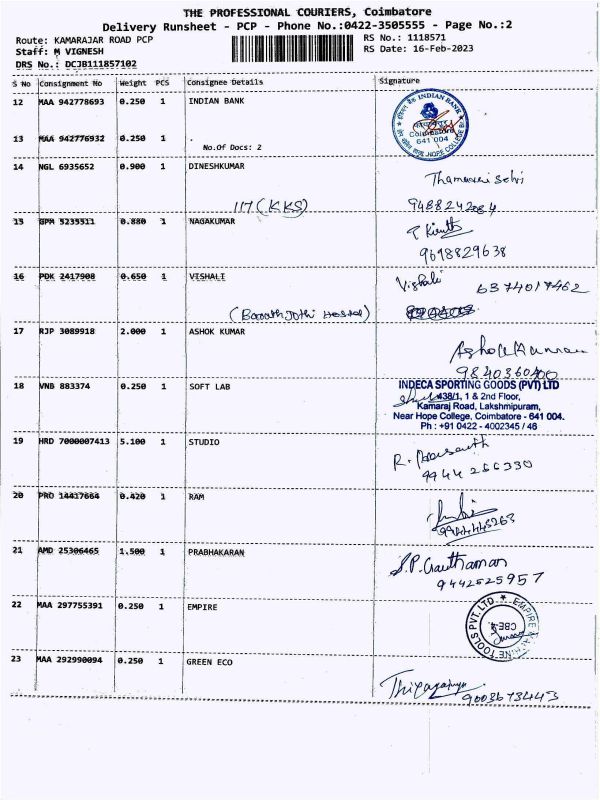 THE PROFESSIONAL COURIERS, Coimbatore
Delivery Runsheet - PCP - Phone No.:0422-3505555 - Page No.:2
Route: KAMARAJAR ROAD PCP
RS No.: 1118571
Staff: M VIGNESH
RS Date: 16-Feb-2023
DRS No.: DCJB111857102
S No Consignment No Weight PCS Consignee Details Signature
12 MAA 942778693 0.250 1 INDIAN BANK
INDIAN BANK
Coimbatore
641 004
HOPE COLLEGE
13 MAA 942776932 0.250 1 .
No.Of Docs: 2
14 NGL 6935652 0.900 1 DINESHKUMAR
117 (KKS)
9488242084
15 GPM 5235511 0.880 1 NAGAKUMAR
9698829638
16 PDK 2417908 0.650 1 VISHALI
Vishali 6374017462
(Barathjothi Hostel)
17 RJP 3089918 2.000 1 ASHOK KUMAR
Ashok Kumar
9840360400
18 VNB 883374 0.250 1 SOFT LAB
INDECA SPORTING GOODS (PVT) LTD
438/1, 1 & 2nd Floor,
Kamaraj Road, Lakshmipuram,
Near Hope College, Coimbatore - 641 004.
Ph : +91 0422 - 4002345 / 46
19 HRD 7000007413 5.100 1 STUDIO
9944266330
20 PRO 14417664 0.420 1 RAM
9944445263
21 AMD 25306465 1.500 1 PRABHAKARAN
S.P. Gauthaman
9442525957
22 MAA 297755391 0.250 1 EMPIRE
EMPIRE MACHINE TOOLS PVT. LTD.
CBE-4
23 MAA 292990094 0.250 1 GREEN ECO
9003673443